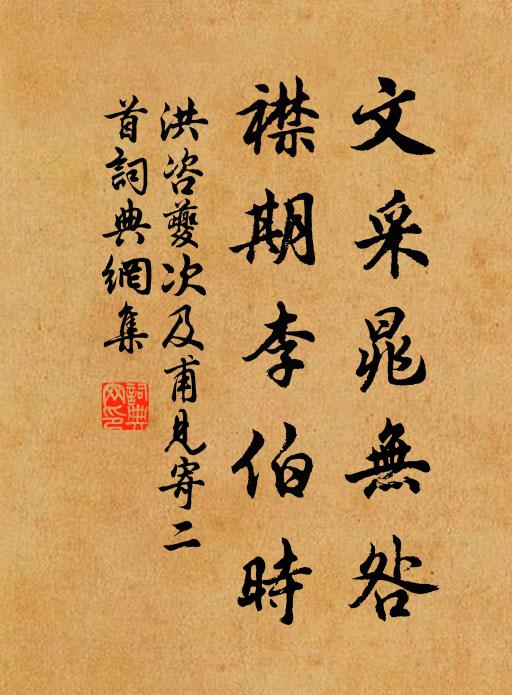 文采晁無咎
襟期李伯時
洪咨夔次及甫見寄二
首詞典網集
詞典網印